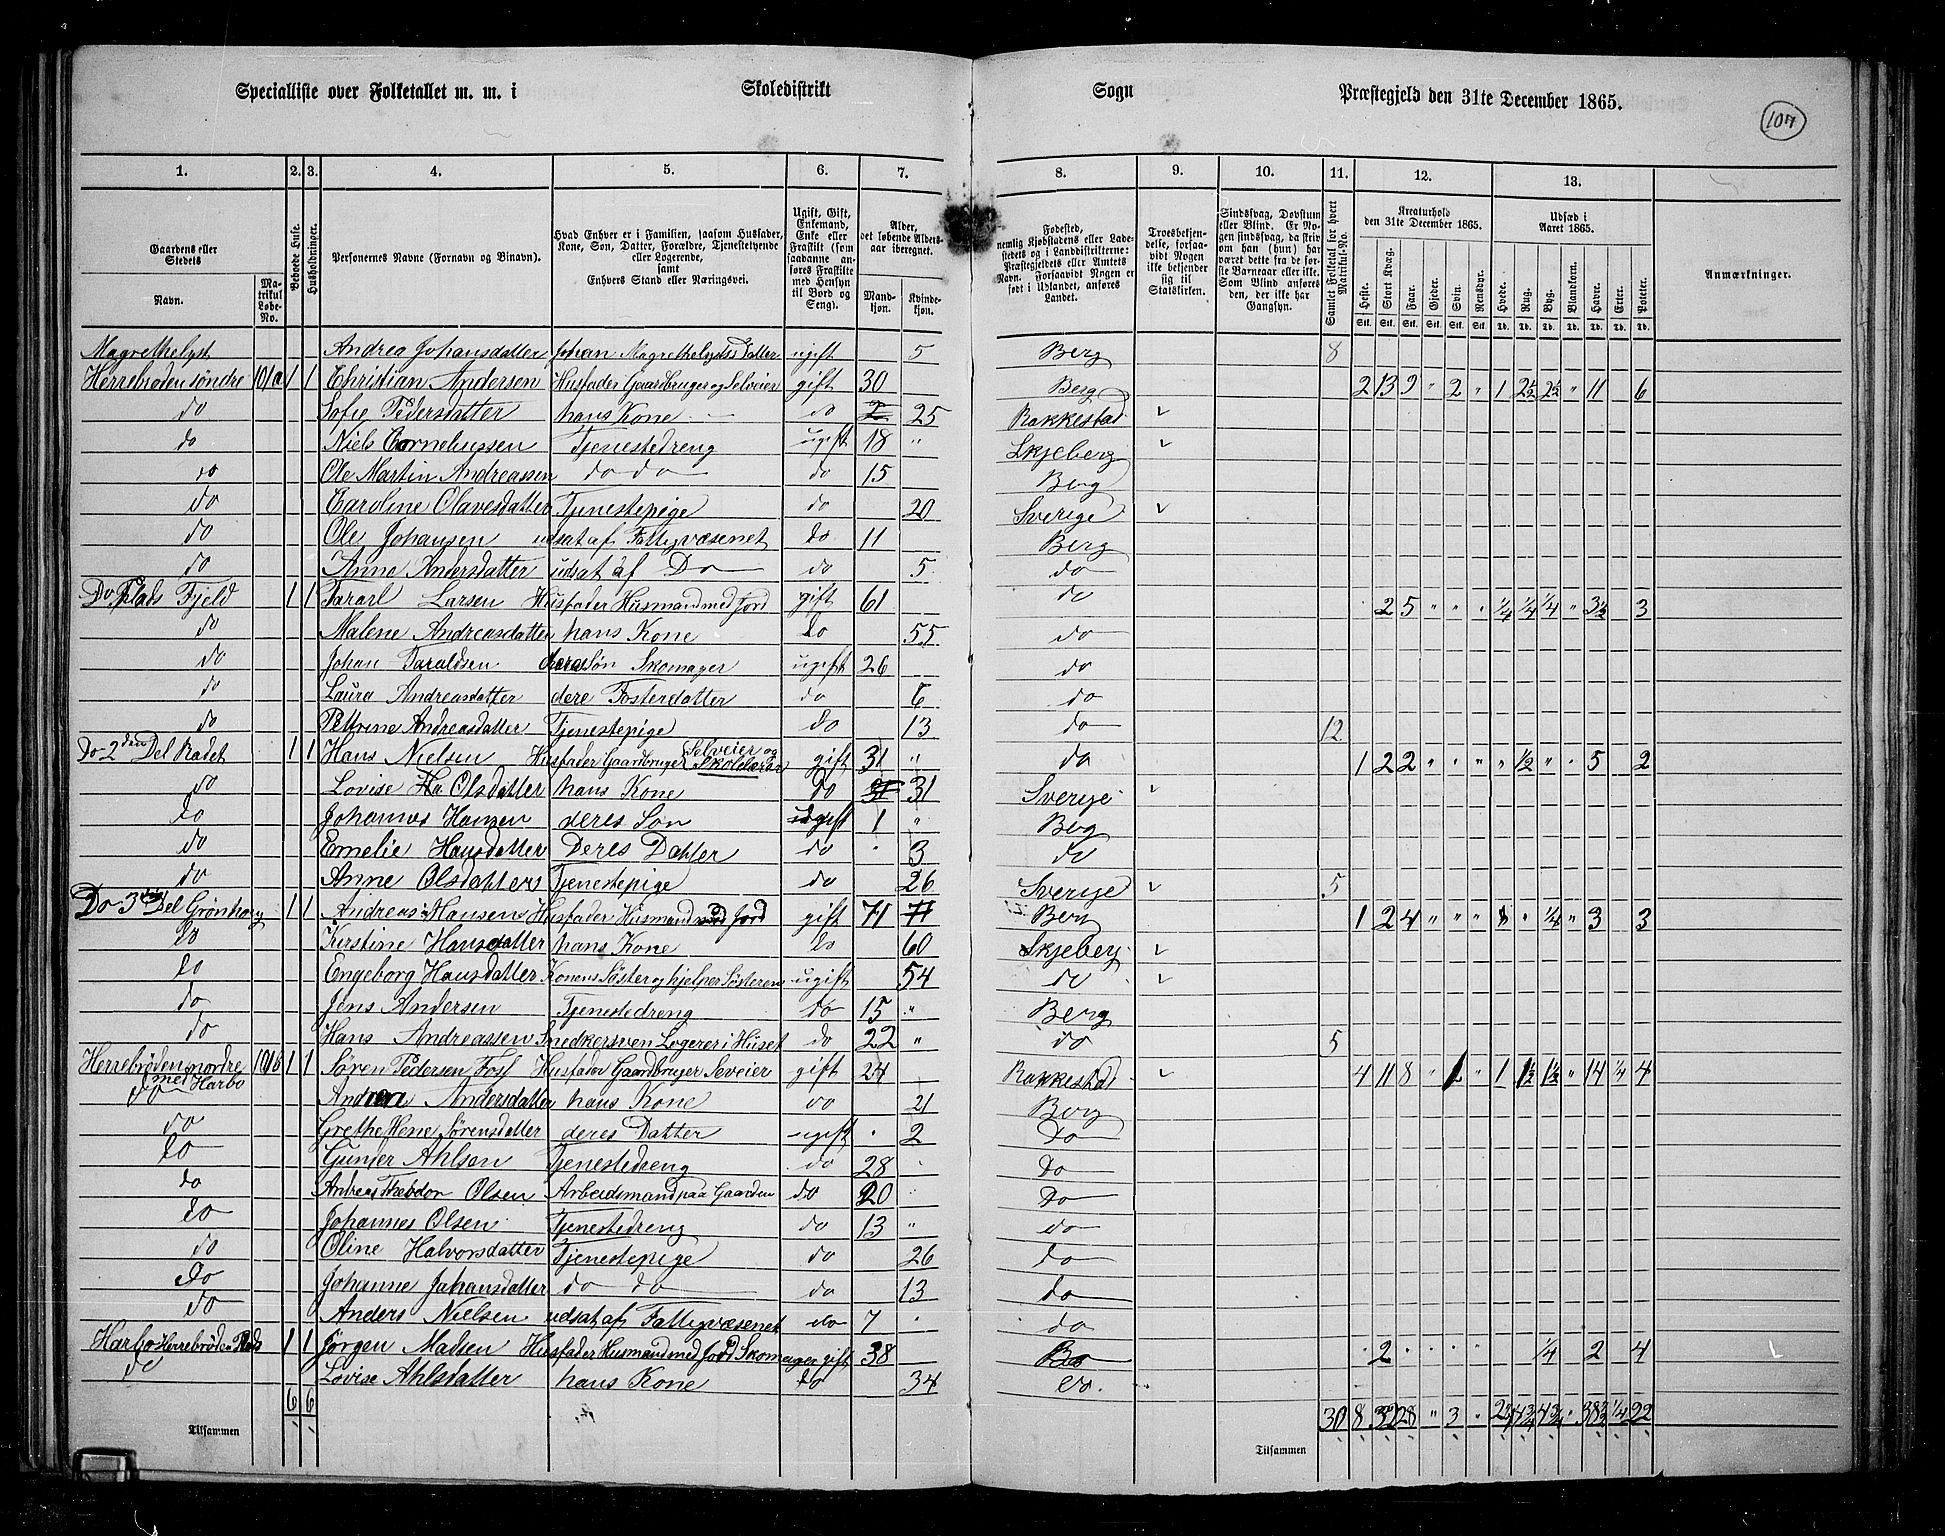 Specialliste over Folketallet m. m. i Skoledistrikt Sogn Præstegjeld den 31te December 1865.
107
1. 2. 3. 4. 5. 6. 7. 8. 9. 10. 11. 12. 13.
Gaardens eller Stedets Navn. Matrikul Løbe-No. Beboede Huse. Husholdninger. Personernes Navne (Fornavn og Binavn). Hvad Enhver er i Familien, saasom Husfader, Kone, Søn, Datter, Forældre, Tjenestetyende eller Logerende, samt Enhvers Stand eller Næringsvei. Ugift, Gift, Enkemand, Enke eller Fraskilt (som saadanne anføres Fraskilte med Hensyn til Bord og Seng). Alder, det løbende Aldersaar iberegnet. Mandkjøn. Kvindekjøn.
Fødested, nemlig Kjøbstadens eller Ladestedets og i Landdistrikterne: Præstegjeldets eller Amtets Navn. Forsaavidt Nogen er født i Udlandet, anføres Landet. Troesbekjendelse, forsaavidt Nogen ikke bekjender sig til Statskirken. Sindssvag, Døvstum eller Blind. Er Nogen sindssvag, da skriv om han (hun) har været dette fra de første Barneaar eller ikke. Som Blind anføres den, der ikke har Gangsyn. Samlet Folketal for hvert Matrikul-No. Kreaturhold den 31te December 1865. Heste. Stort Kvæg. Faar. Gjeder. Svin. Rensdyr. Udsæd i Aaret 1865. Hvede. Rug. Byg. Blandkorn. Havre. Erter. Poteter. Anmærkninger.
Stk. Stk. Stk. Stk. Stk. Stk. Td. Td. Td. Td. Td. Td. Td.
Magrethelyst Andrea Johansdatter Johan Magrethelysts Datter ugift 5 Berg 8
Herrebrøden søndre 101a 1 1 Christian Andersen Husfader Gaardbruger og Selveier gift 30 Berg 2 13 9 " 2 " 1 2½ 2½ " 11 6
do Sofie Pedersdatter hans Kone do 25 Rakkestad
do Niels Corneliussen Tjenestedreng ugift 18 " Skjeberg
do Ole Martin Andreassen do do do 15 Berg
do Caroline Olavesdatter Tjenestepige do 20 Sverige
do Ole Johansen udsat af Fattigvæsenet do 11 Berg
do Anne Andersdatter udsat af Do do 5 do
Do Plads Fjeld 1 1 Tararl Larsen Husfader Husmand med Jord gift 61 do 2 5 " " " ¼ ¼ ¼ " 3½ 3
do Malene Andreasdatter hans Kone do 55 do
do Johan Taraldsen deres Søn Skomager ugift 26 do
do Laura Andreasdatter dere Fosterdatter do 6 do
do Pettrine Andreasdatter Tjenestepige do 13 do 12
Do 2den Del Radet 1 1 Hans Nielsen Husfader Gaardbruger Selveier og Skolelærer gift 31 " do 1 2 2 " " " " ½ " 5 2
do Lovise Olsdatter hans Kone do 31 Sverige
do Johannes Hansen deres Søn ugift 1 " Berg
do Emelie Hansdatter Deres Datter do 3 do
do Anne Olsdatter Tjenestepige do 26 Sverige 5
Do 3die Del Grønhaug 1 1 Andreas Hansen Husfader Husmand med Jord gift 71 Berg 1 2 4 " " " ¼ " 3 3
do Kirstine Hansdatter hans Kone do 60 Skjeberg
do Engeborg Hansdatter Konens Søster og hjelper Søsteren ugift 54 do
do Jens Andersen Tjenestedreng do 15 " Berg
do Hans Andreassen Snedkersven Logerer i Huset do 22 " do 5
Herrebrøden nordre med Harbo 101b 1 1 Søren Pedersen Foss Husfader Gaardbruger Seveier gift 24 Rakkestad 4 11 8 " 1 " 1 1½ 1½ " 14 ¼ 4
do Andrea Andersdatter hans Kone do 21 Berg
do Grethe Sørensdatter deres Datter ugift 2 Do
do Gunder Ahlsen Tjenestedreng do 28 Do
do Andreas Olsen Arbeidsmand paa Gaarden do 20 Do
do Johannes Olsen Tjenestedreng do 13 " do
do Oline Halvorsdatter Tjenestepige do 26 do
do Johanne Johansdatter do do do 13 do
do Anders Nielsen udsat af Fattigvæsenet do 7 do
Harbo Herrebrøden Plads 1 1 Jørgen Madsen Husfader Husmand med Jord Skomager gift 38 Do 2 ¼ 2 4
do Lovise Ahlsdatter hans Kone do 34 do
6 6
Tilsammen Tilsammen 30 8 32 28 " 3 " 2¼ 4¾ 4¾ " 38½ ¼ 22